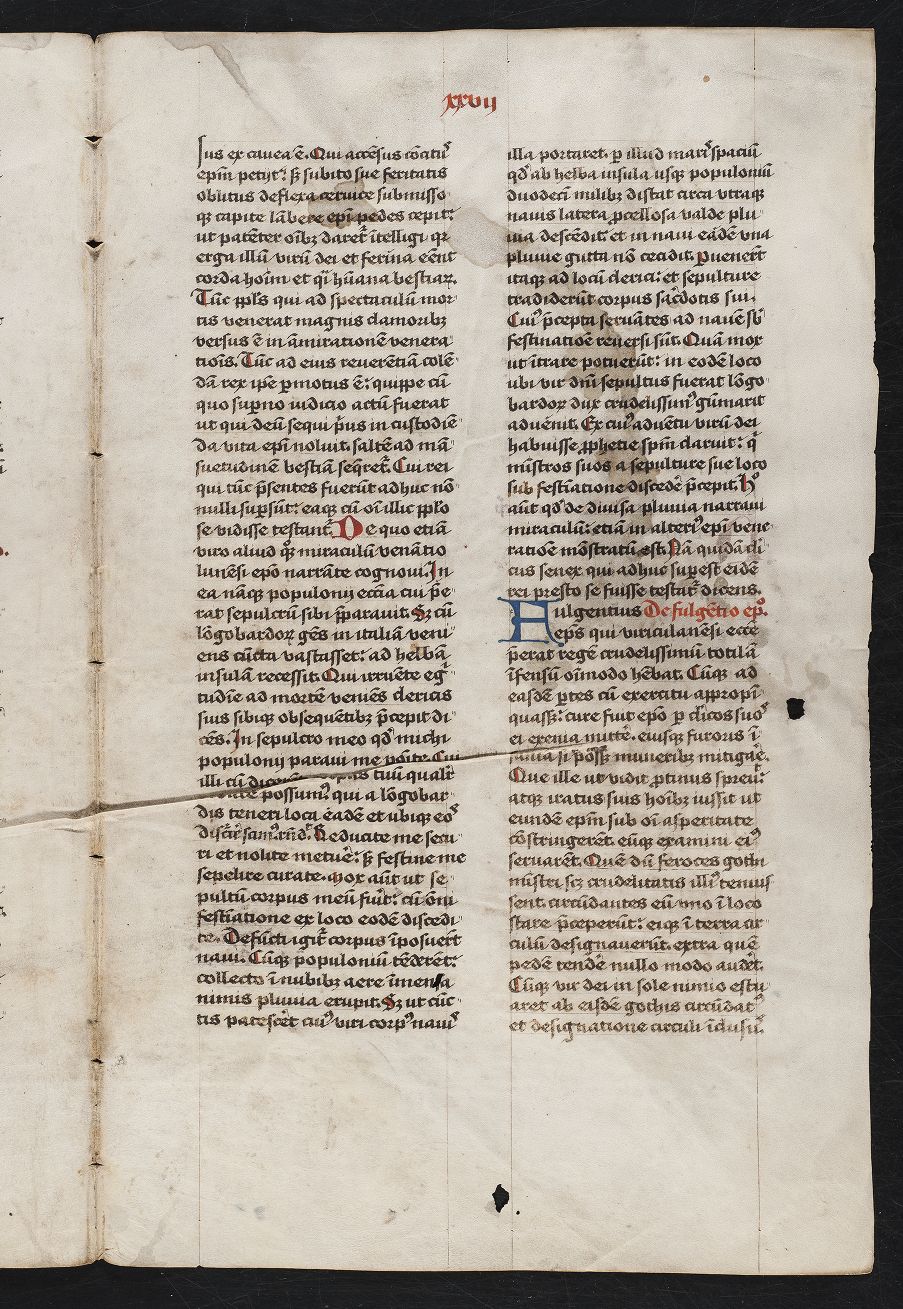 xxvii
sus ex cavea ē. Qui accēsus cōcitꝰ
epm̄ petiit: sꝫ subito sue feritatis
oblitus deflexa cervice submisso
qꝫ capite lābere epī pedes cepit:
ut patēter oībꝫ daret᷑ ītelligi qꝛ
erga illū virū dei et ferina eēnt
corda hoīm et qͣi hūana bestiaꝝ.
Tūc ppl̄s qui ad spectaculū mor
tis venerat magnis clamoribꝫ
versus ē in āmirationē venera
tiōis. Tūc ad eius reverētiā colē
dā rex ipē ꝑmotus ē: quippe cū
quo supno iudicio actū fuerat
ut qui deū sequi p̄us in custodiē
da vita epī noluit. saltē ad mā
suetudinē bestiā seqret᷑. Cui rei
qui tūc p̄sentes fuerūt adhuc nō
nulli supsūt: eaqꝫ cū oī illic pplo
se vidisse testant᷑. De quo etiā
viro aliud qꝫ miraculū venātio
lunēsi epo narrāte cognovi. In
ea nāqꝫ populonij ecc̄ia cui p̄e
rat sepulcrū sibi p̄paravit. Sꝫ cū
lōgobardoꝝ gēs in italiā veni
ens cūcta vastasset: ad helbā
insulā recessit. Qui irruēte eg̕
tudīe ad mortē veniēs clericis
suis sibiqꝫ obsequētibꝫ p̄cepit di
cēs. In sepulcro meo qd̕ michi
populonij paravi me pōite. Cui
illi cū cuū qualit᷑
possumꝰ qui a lōgobar
dis teneri loca eadē et ubiqꝫ eoꝰ
discr̕r̕ scimꝰ. rn̄d᷑. Reducite me secu
ri et nolite metue᷑: sꝫ festine me
sepelire curate. mox aūt ut se
pultū corpus meū fūt᷑: cū oni
festīatione ex loco eodē discedi
te. Defūcti igit᷑ corpus īposuert
navi. Cūqꝫ populoniū tēderēt:
collecto ī nubibꝫ aere īmensa
nimis pluvia erupit. Sꝫ ut cūc
tis patescēt cuiꝰ viri corpꝰ navꝰ
illa portaret. ꝑ illud marꝰ spaciū
qd̕ ab helba insula usqꝫ populoniū
duodeci milibꝫ distat circa utraqꝫ
navis latera ꝓcellosa valde plu
via descēdit. et in navi eādē vna
pluvie gutta nō cecidit. puenert
itaqꝫ ad locū clerici: et sepulture
tradiderūt corpus sac̄dotis sui.
Cuiꝰ p̄cepta servātes ad navē sb̄
festinatiōe reversi sūt. Quā mox
ut ītrare potuerūt: in eodē loco
ubi vir dn̄i sepultus fuerat lōgo
bardoꝝ dux crudelissimꝰ gūmarit
advēnit. Ex cuiꝰ advētu virū dei
habuisse ꝓphetie spm̄ claruit: qͥ
mīstros suos a sepulture sue loco
sub festīatione discedē p̄cepit. Hꝰ
aūt qd̕ de divisa pluvia narravi
miraculū: etiā in alteriꝰ epī vene
ratiōe mōstratū est. Nā quidā cli
cus senex qui adhuc supest eidē
rei presto se fuisse testat᷑ dicens.
Fulgentius De fulgētio epo.
eps̄ qui vtriculanēsi eccē
p̄erat regē crudelissimū totilā
īfensū oīmodo hēbat. Cūqꝫ ad
easdē ꝑtes cū exercitu appropī
quasꝫ: cure fuit epo ꝑ cl̄icos suoꝰ
ei exenia mittē. eiusqꝫ furoris ī
saniā si possꝫ muneribꝫ mitigaē.
Que ille ut vidit ꝓtinus sprevꝰ:
atqꝫ iratus suis hoībꝫ iussit ut
eundē epm̄ sub oī asperitate
cōstringerēt. eūqꝫ examini eiꝰ
servarēt. Quē dū feroces gothi
mīstri scꝫ crudelitatis illiꝰ tenuis
sent. circūdantes eū vno ī loco
stare p̄ceperūt: eiqꝫ ī terra cir
culū designaverūt. extra quē
pedē tendē nullo modo audēt.
Cūqꝫ vir dei in sole nimio estu
aret ab eisdē gothis circūdatꝰ
et designatione circuli īclusuꝰ.